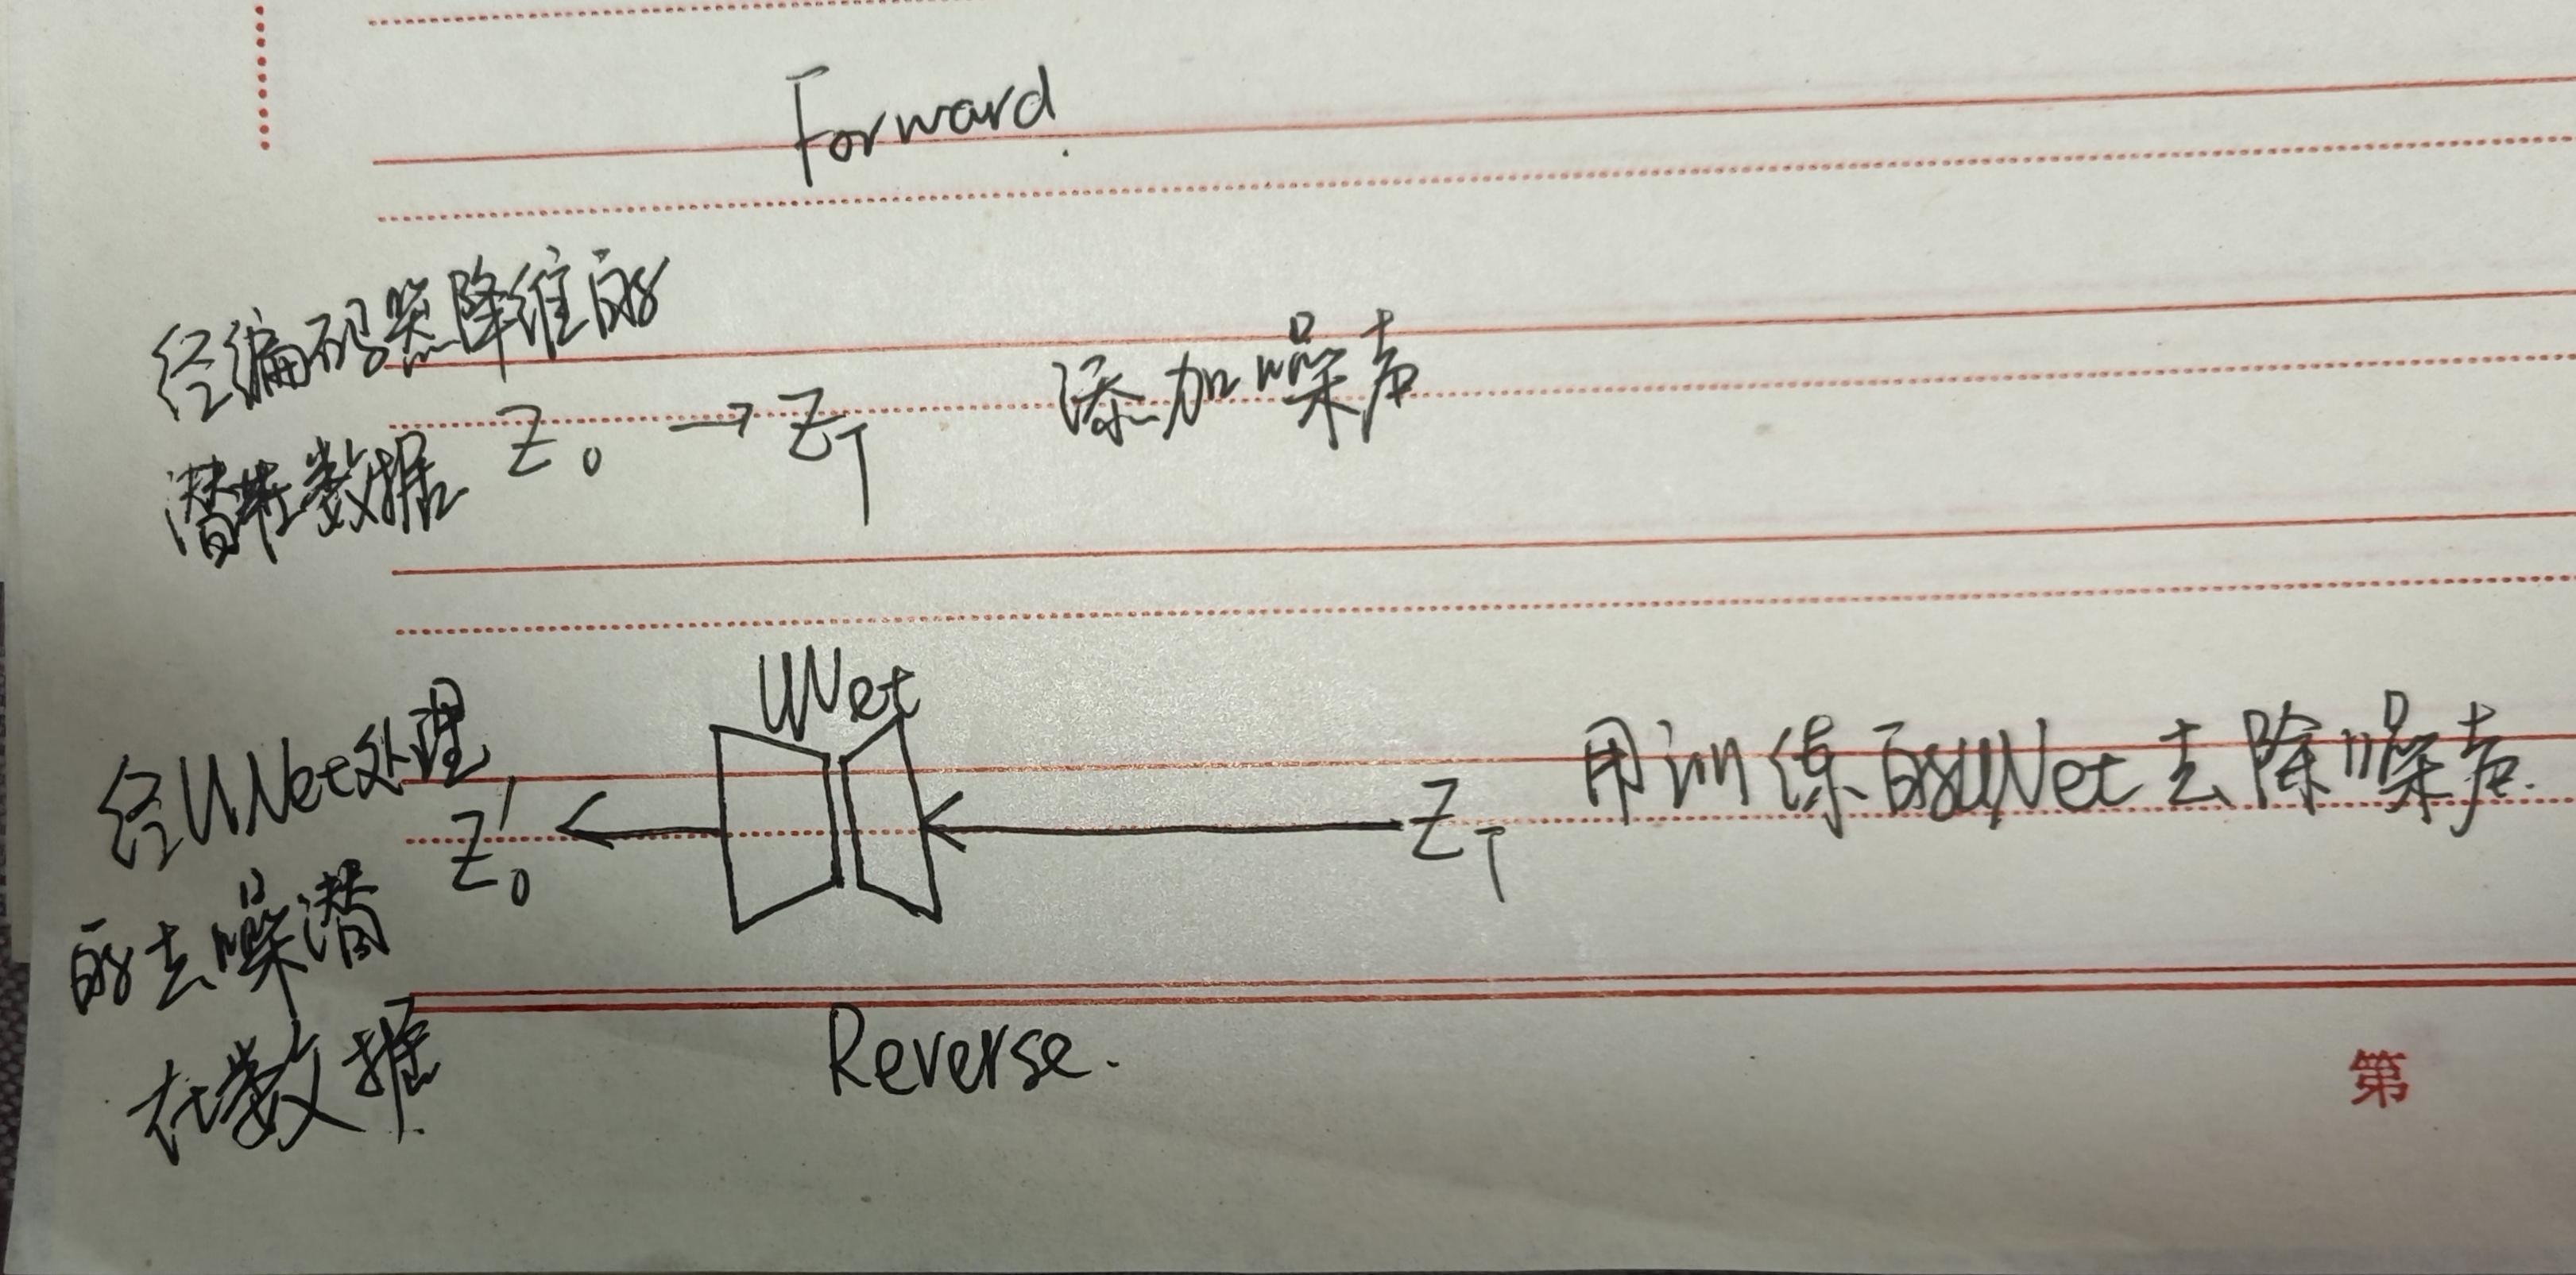 Forward.
经编码器降维的
潜在数据 Z₀ → Z_T 添加噪声
UNet
经UNet处理
Z₀' Z_T 用训练的UNet去除噪声.
的去噪潜
在数据
Reverse.
第